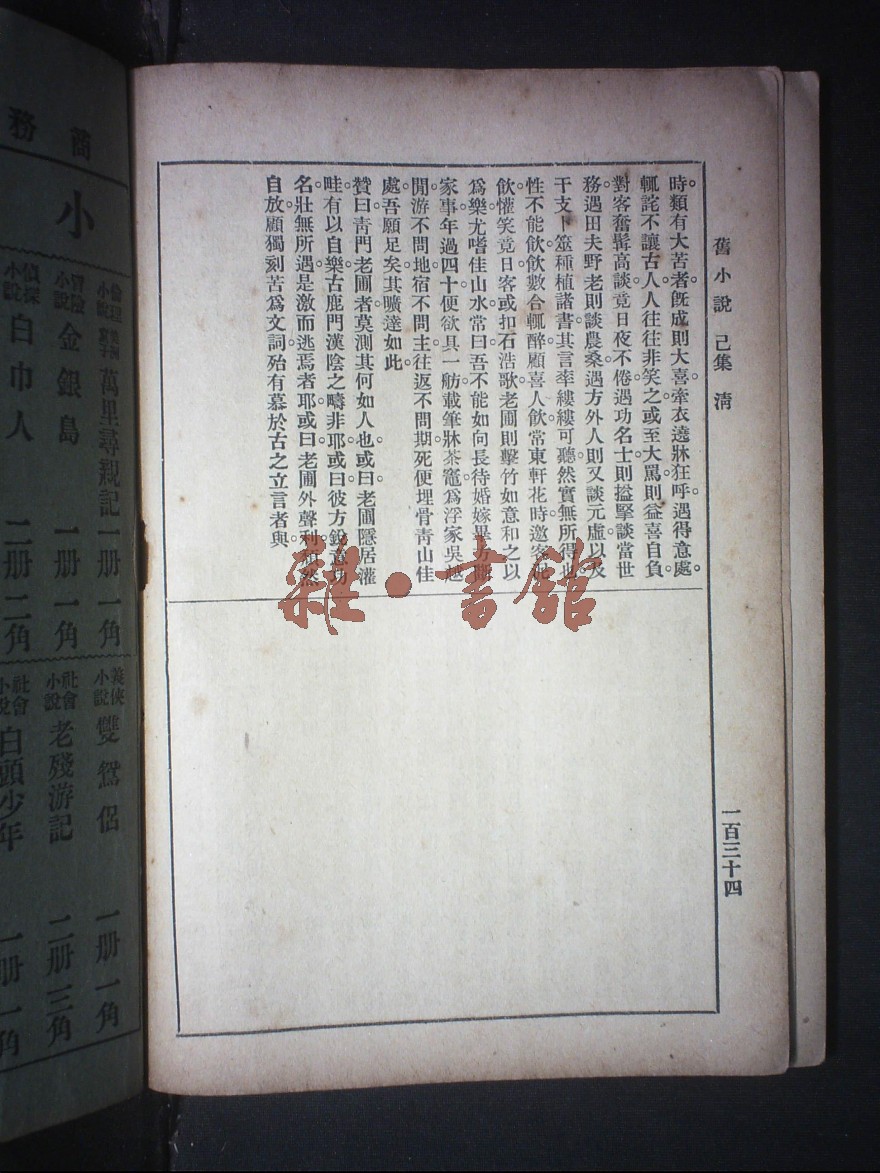 舊小說 己集 清
時類有大苦者。旣成則大喜。牽衣遶牀狂呼。遇得意處。
輒詫不讓古人。人往往非笑之。或至大罵。則益喜自負。
對客奮髯高談。竟日夜不倦。遇功名士。則搤掔談當世
務。遇田夫野老。則談農桑。遇方外人。則又談元虛。以及
干支卜筮種植諸書。其言率縷縷可聽。然實無所得也。
性不能飲。飲數合輒醉。顧喜人飲。常東軒花時。邀客
飲。懽笑竟日。客或扣石浩歌。老圃則擊竹如意和之。以
爲樂。尤嗜佳山水。常曰。吾不能如向長待婚嫁畢。方
家事。年過四十。便欲具一舫。載筆牀茶竈。爲浮家吳越
閒游。不問地。宿不問主。往返不問期。死便埋骨青山佳
處。吾願足矣。其曠達如此。
贊曰。青門老圃者。莫測其何如人也。或曰。老圃隱居灌
畦。有以自樂。古鹿門漢陰之疇非耶。或曰。彼方銳意功
名。壯無所遇。是激而逃焉者耶。或曰。老圃外聲利。然
自放。顧獨刻苦爲文詞。殆有慕於古之立言者與。
一百三十四
雜·書館
商務
小
萬里尋親記 一册 一角
冒險小說 金銀島 一册 一角
偵探小說 白巾人 二册 二角
義俠小說 雙鴛侶 一册 一角
社會小說 老殘游記 二册 三角
社會小說 白頭少年 一册 一角